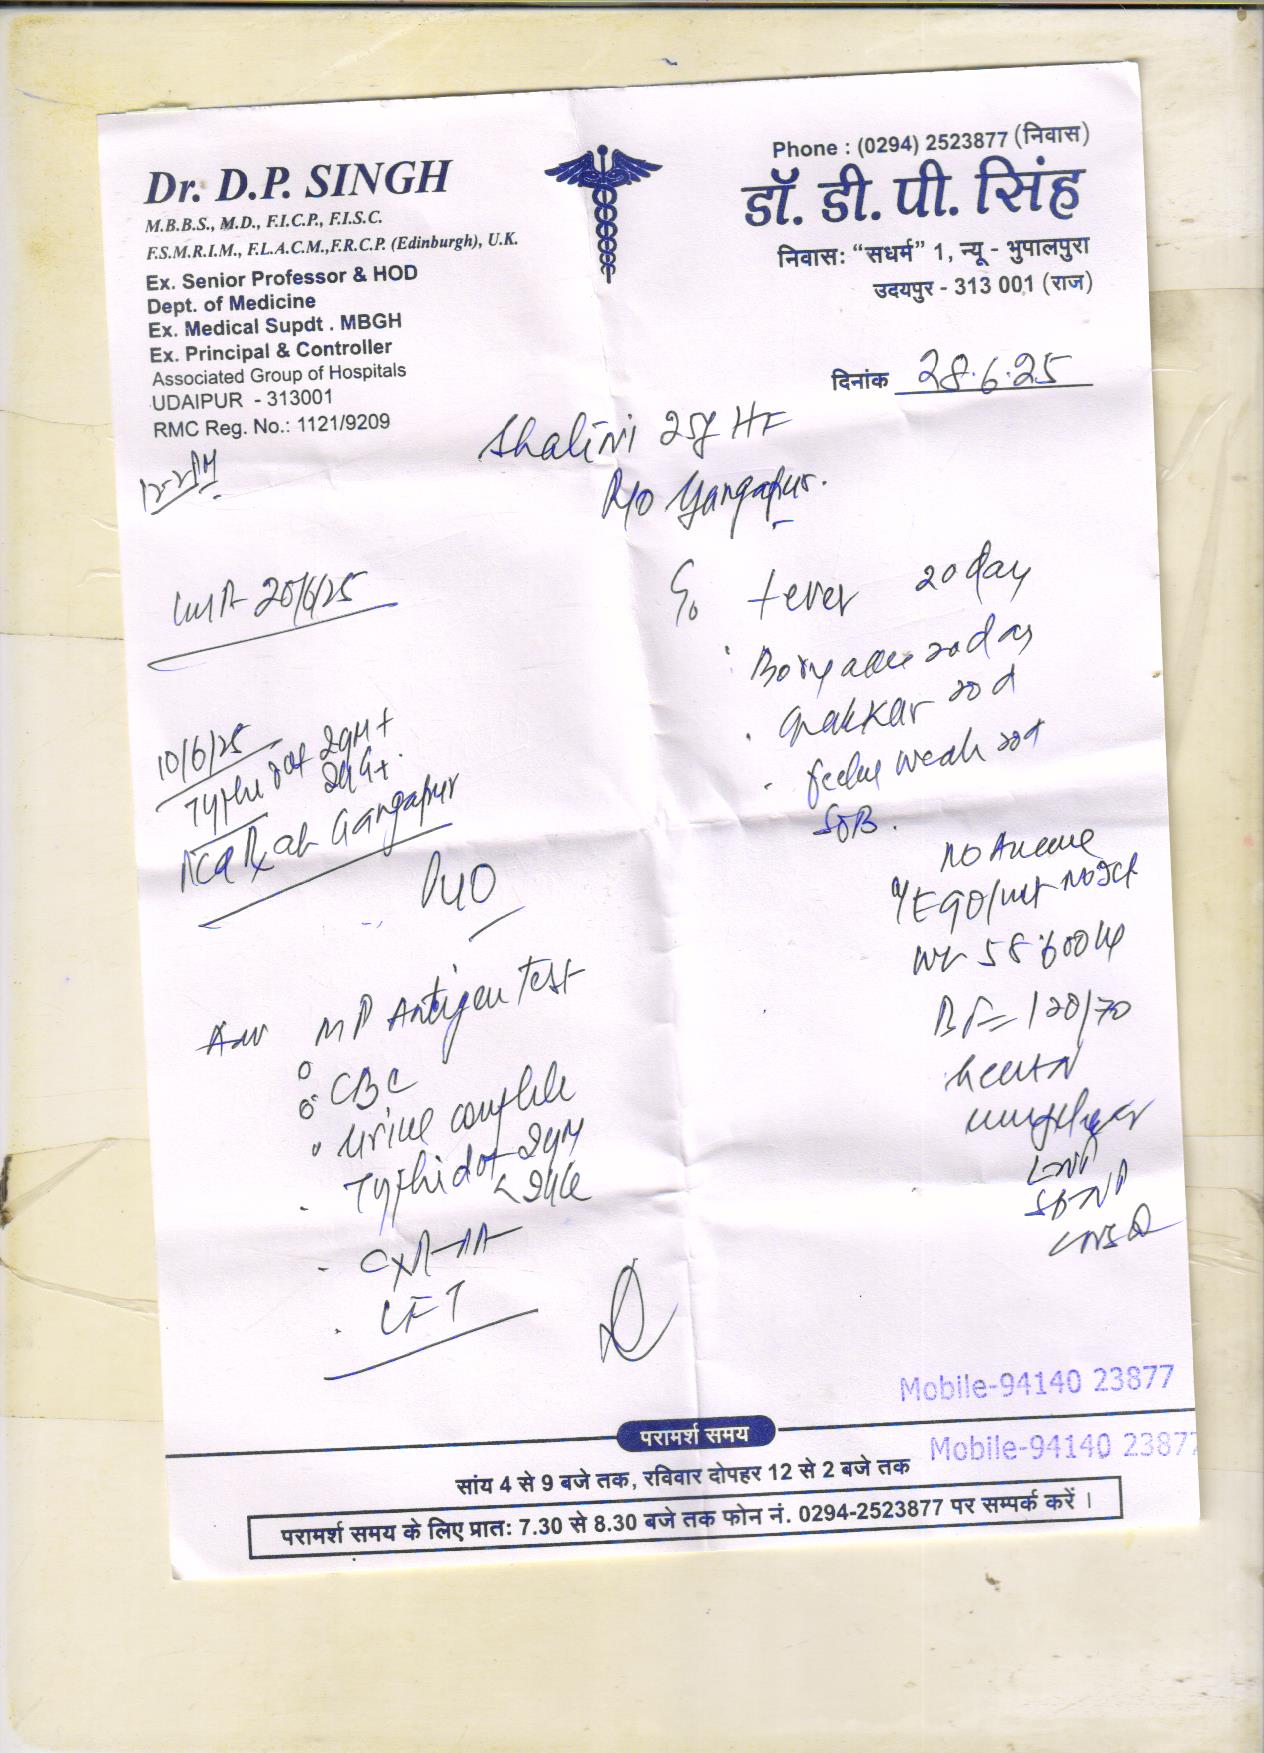 Dr. D.P. SINGH
M.B.B.S., M.D., F.I.C.P., F.I.S.C.
F.S.M.R.I.M., F.L.A.C.M.,F.R.C.P. (Edinburgh), U.K.
Ex. Senior Professor & HOD
Dept. of Medicine
Ex. Medical Supdt . MBGH
Ex. Principal & Controller
Associated Group of Hospitals
UDAIPUR - 313001
RMC Reg. No.: 1121/9209
Phone : (0294) 2523877 (निवास)
डॉ. डी. पी. सिंह
निवास: “सधर्म” 1, न्यू - भुपालपुरा
उदयपुर - 313 001 (राज)
दिनांक 28.6.25
Shalini 25y HF
R/o Gangapur.
20/6/25
C/o fever 20 day
20 day
Chakkar 20d
weak 20d
SOB.
10/6/25
Typhidot IgM+
IgG+
at Gangapur
PUO
No
Wt 58.600 kg
BP= 120/70
MP Antigen Test
CBC
Urine complete
Typhidot IgM
IgG
CXR-PA
LFT
Mobile-94140 23877
परामर्श समय
Mobile-94140 2387
सांय 4 से 9 बजे तक, रविवार दोपहर 12 से 2 बजे तक
परामर्श समय के लिए प्रात: 7.30 से 8.30 बजे तक फोन नं. 0294-2523877 पर सम्पर्क करें ।